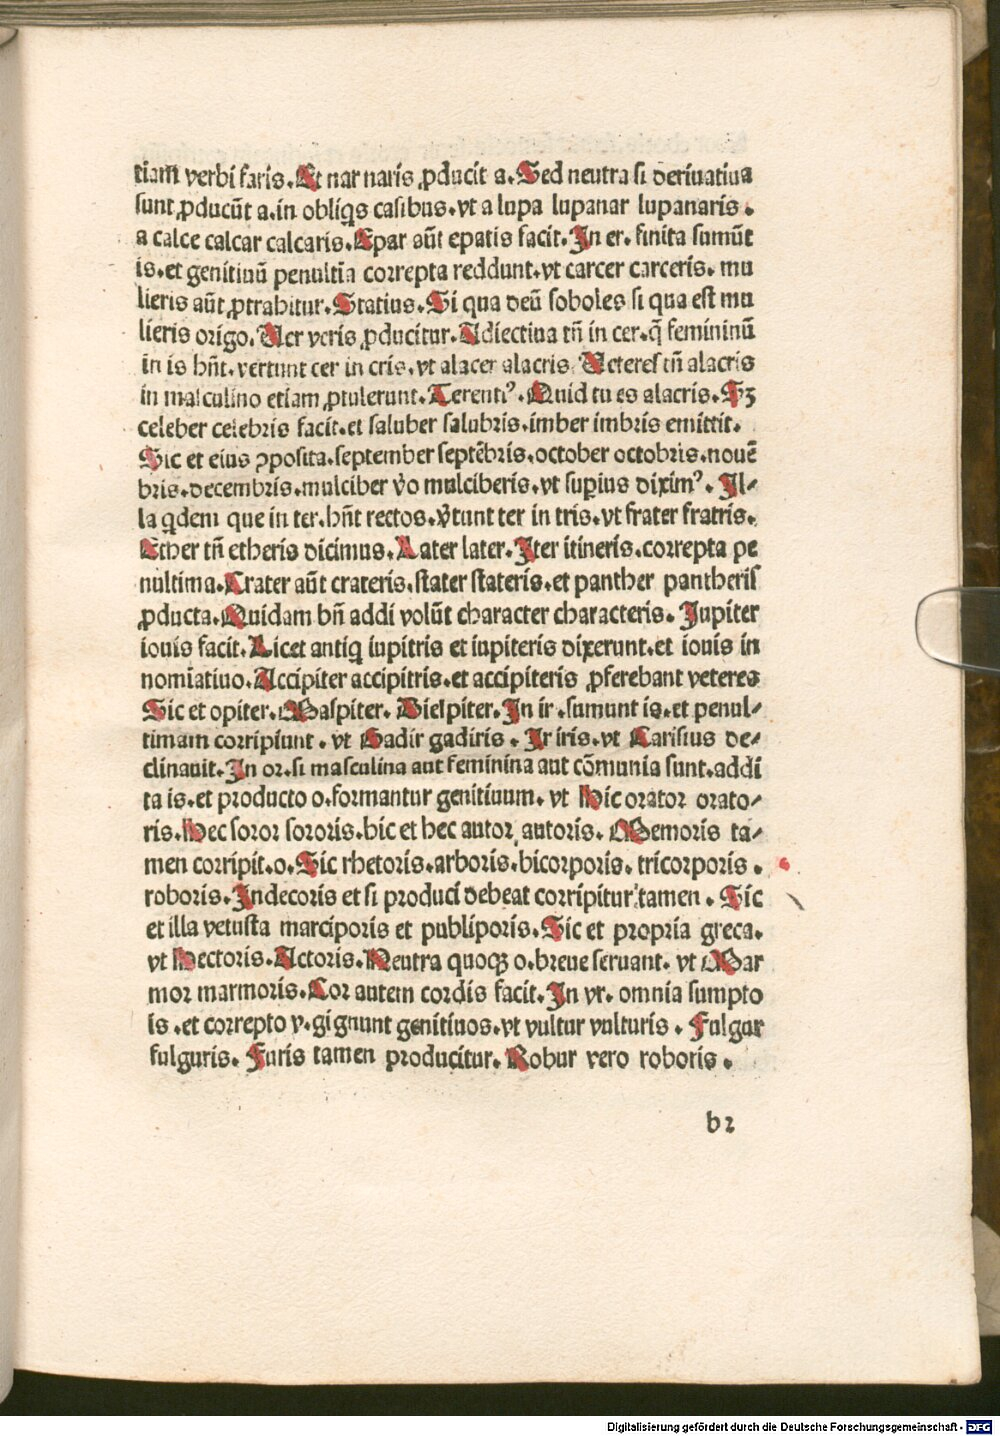 tiam verbi faris. Et nar naris ꝓducit a. Sed neutra si deriuatiua
sunt ꝓducūt a. in obliqͥs casibus. vt a lupa lupanar lupanaris.
a calce calcar calcaris. Epar aūt epatis facit. In er. finita sumūt
is. et genitiuū penultīa correpta reddunt. vt carcer carceris. mu
lieris aūt ꝓtrahitur. Statius. Si qua deū soboles si qua est mu
lieris origo. Ver veris ꝓducitur. Adiectiua tn̄ in cer. q̄ femininū
in is hn̄t. vertunt cer in cris. vt alacer alacris. Veteres tn̄ alacris
in masculino etiam ꝓtulerunt. Terentiꝰ. Quid tu es alacris. Sꝫ
celeber celebris facit. et saluber salubris. imber imbris emittit.
Sic et eius ꝯposita. september septēbris. october octobris. nouē
bris. decembris. mulciber v̄o mulciberis. vt superius diximꝰ. Il⸗
la qͥdem que in ter. hn̄t rectos. v̄tunt ter in tris. vt frater fratris.
Ether tn̄ etheris dicimus. Later later. Iter itineris. correpta pe
nultima. Crater aūt crateris. stater stateris. et panther pantheris
ꝓducta. Quidam hn̄ addi volūt character characteris. Jupiter
iouis facit. Licet antiqͥ iupitris et iupiteris dixerunt. et iouis in
nomīatiuo. Accipiter accipitris. et accipiteris ꝓferebant veteres
Sic et opiter. Maspiter. Diespiter. In ir. sumunt is. et penul⸗
timam corripiunt. vt Gadir gadiris. Ir iris. vt Carisius de⸗
clinauit. In or. si masculina aut feminina aut cōmunia sunt. addi
ta is. et producto o. formantur genitiuum. vt Hic orator orato⸗
ris. Hec soror sororis. hic et hec autor autoris. Memoris ta⸗
men corripit. o. Sic rhetoris. arboris. bicorporis. tricorporis.
roboris. Indecoris et si produci debeat corripitur tamen. Sic
et illa vetusta marciporis et publiporis. Sic et propria greca.
vt Hectoris. Actoris. Neutra quoqꝫ o. breue seruant. vt Mar
mor marmoris. Cor autem cordis facit. In vr. omnia sumpto
is. et correpto v. gignunt genitiuos. vt vultur vulturis. Fulgur
fulguris. Furis tamen producitur. Robur vero roboris.
b2
Digitalisierung gefördert durch die Deutsche Forschungsgemeinschaft - DFG